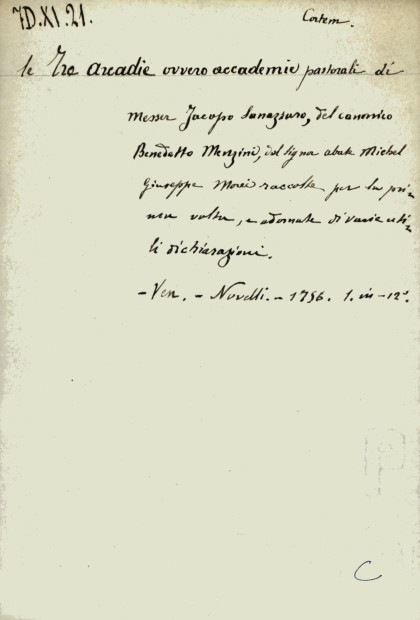 7D.XI.21.
Contem.
le Tre arcadie ovvero accademie pastorali di
Messer Jacopo Sanazzaro, del canonico
Benedetto Menzini, del signor abate Michel
Giuseppe Morei raccolte per la pri-
ma volta, e adornate di varie uti-
li dichiarazioni.
– Ven. – Novelli. – 1756. 1. in – 12°.
C